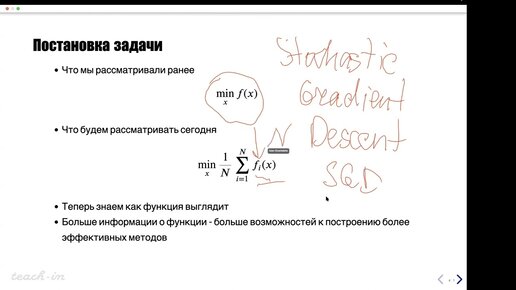 Постановка задачи
• Что мы рассматривали ранее
min f(x)
x
• Что будем рассматривать сегодня
min 1/N ∑ i=1 N fᵢ(x)
x
• Теперь знаем как функция выглядит
• Больше информации о функции - больше возможностей к построению более
эффективных методов
Stochastic
Gradient
Descent
SGD
N
teach-in